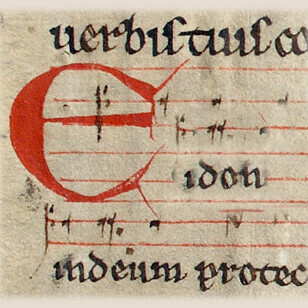 uerbis tuis co
E idon
indeum protec